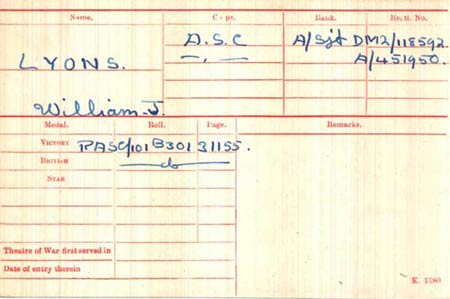 Name. Corps. Rank. Regtl. No.
LYONS. A.S.C A/Sjt DM2/118592.
—,— A/451950.
William J.
Medal. Roll. Page. Remarks.
VICTORY RASC/101B301 31155.
BRITISH do
STAR
Theatre of War first served in
Date of entry therein
K. 1380